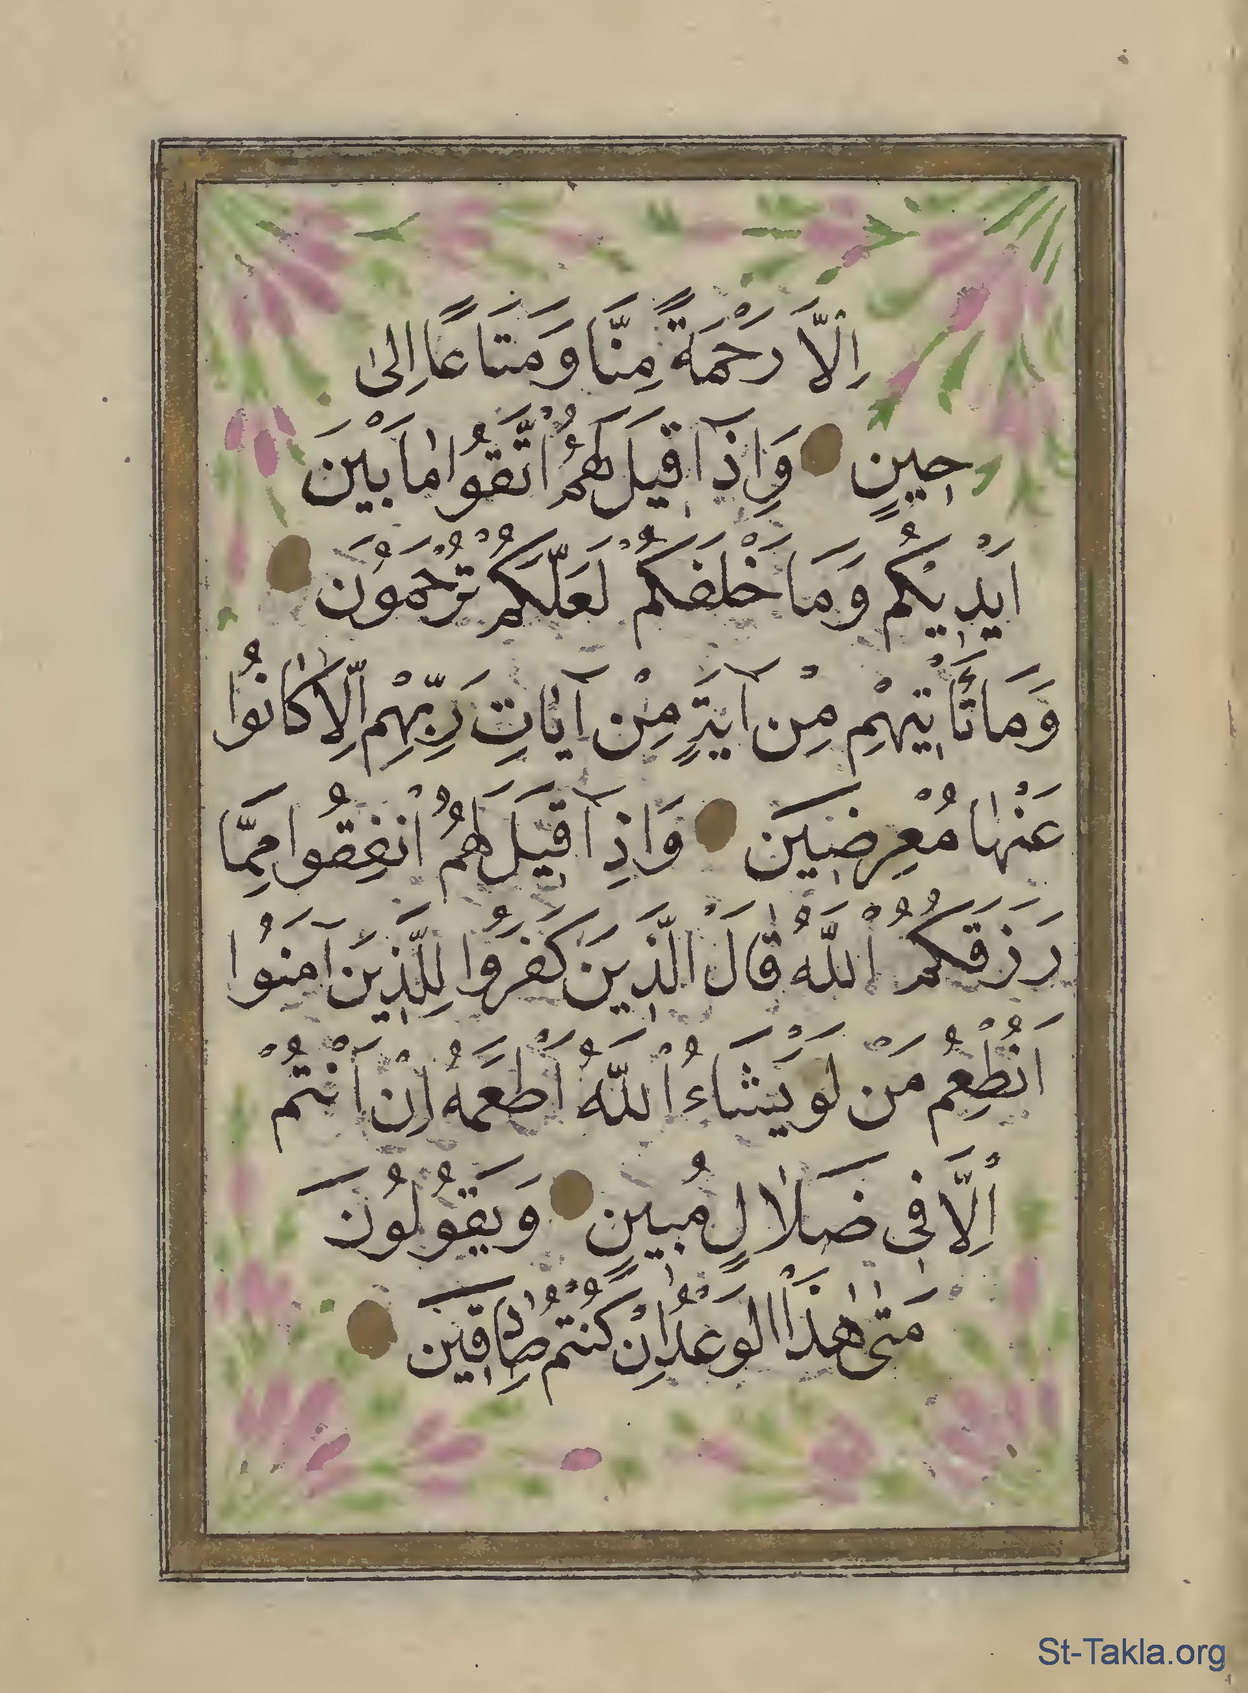 اِلَّا رَحْمَةً مِنَّا وَمَتَاعًا اِلىٰ
حِينٍ وَاِذَا قِيلَ لَهُمُ اتَّقُوا مَا بَيْنَ
اَيْدِيكُمْ وَمَا خَلْفَكُمْ لَعَلَّكُمْ تُرْحَمُونَ
وَمَا تَأْتِيهِمْ مِنْ آيَةٍ مِنْ آيَاتِ رَبِّهِمْ اِلَّا كَانُوا
عَنْهَا مُعْرِضِينَ وَاِذَا قِيلَ لَهُمْ اَنْفِقُوا مِمَّا
رَزَقَكُمُ اللّٰهُ قَالَ الَّذِينَ كَفَرُوا لِلَّذِينَ آمَنُوا
اَنُطْعِمُ مَنْ لَوْ يَشَاءُ اللّٰهُ اَطْعَمَهُ اِنْ اَنْتُمْ
اِلَّا فِى ضَلَالٍ مُبِينٍ وَيَقُولُونَ
مَتىٰ هٰذَا الْوَعْدُ اِنْ كُنْتُمْ صَادِقِينَ
St-Takla.org